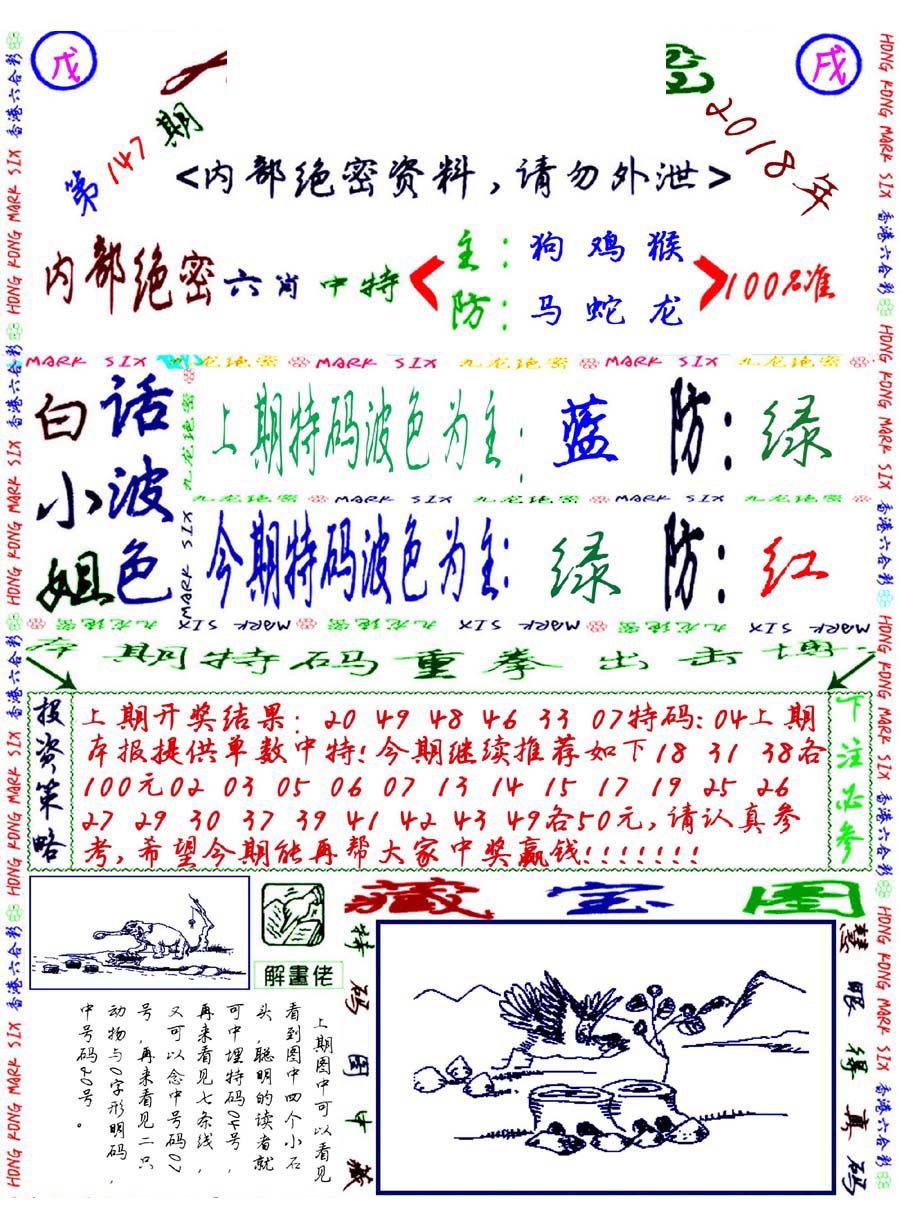 戊
戌
第147期
2018年
<内部绝密资料,请勿外泄>
内部绝密六肖中特
主:狗 鸡 猴
防:马 蛇 龙
100%准
MARK SIX 九龙绝密 MARK SIX 九龙绝密 MARK SIX 九龙绝密
白话
小波
姐色
上期特码波色为主:蓝 防:绿
九龙绝密 MARK SIX 九龙绝密 MARK SIX 九龙绝密
今期特码波色为主:绿 防:红
九龙绝密 MARK SIX 九龙绝密 MARK SIX 九龙绝密 MARK SIX
本期特码重拳出击博
投资策略
上期开奖结果: 20 49 48 46 33 07特码:04上期
本报提供单数中特!今期继续推荐如下18 31 38各
100元02 03 05 06 07 13 14 15 17 19 25 26
27 29 30 37 39 41 42 43 49各50元,请认真参
考,希望今期能再帮大家中奖赢钱!!!!!!!
下注必参
解畫佬
藏宝图
上期图中可以看见
看到图中四个小石
头,聪明的读者就
可中埋特码04号,
再来看见七条线,
又可以念中号码07
号,再来看见二只
动物与0字形明码,
中号码20号。
特码图中藏
慧眼得真码
HONG KONG MARK SIX 香港六合彩
HONG KONG MARK SIX 香港六合彩